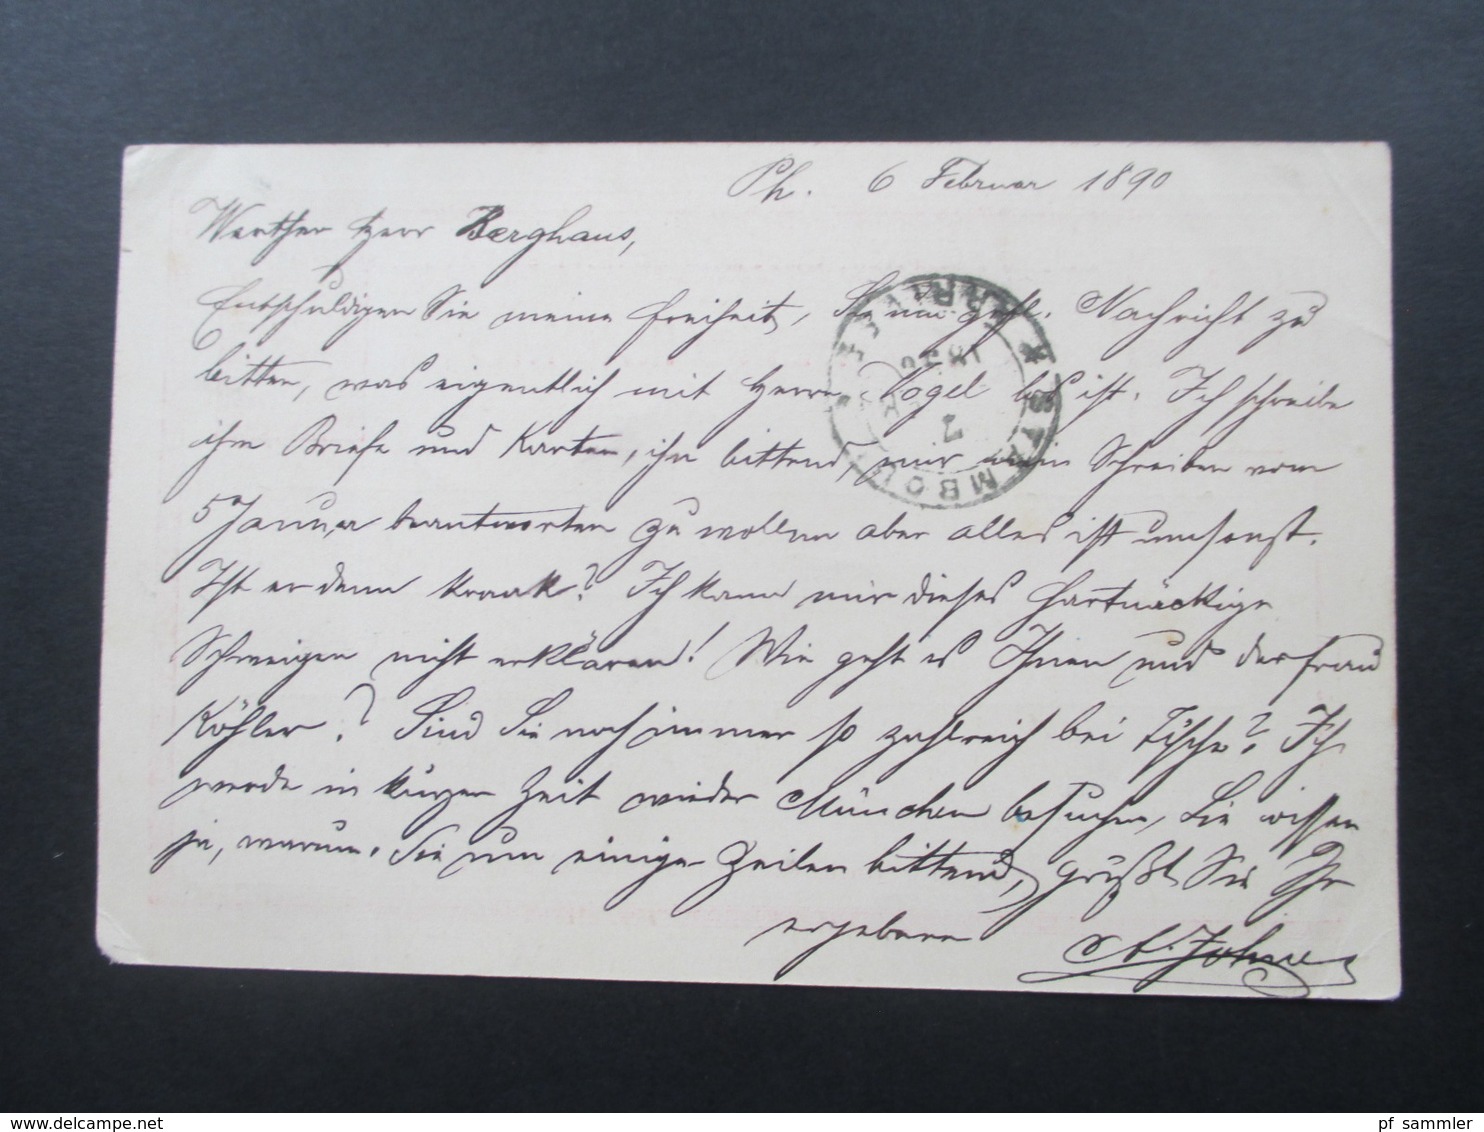 Ph. 6 Februar 1890
Werther Herr Berghaus,
Entschuldigen Sie meine Freiheit, Sie um gefl. Nachricht zu
bitten, was eigentlich mit Herrn Vogel los ist. Ich schreibe
ihm Briefe und Karten, ihn bittend, mir mein Schreiben vom
5 Januar beantworten zu wollen aber alles ist umsonst.
Ist er denn krank? Ich kann mir dieses hartnäckige
Schweigen nicht erklären! Wie geht es Ihnen und der Frau
Köhler? Sind Sie noch immer so zahlreich bei Tische? Ich
werde in kurzer Zeit wieder München besuchen, Sie wissen
ja, warum. Sie um einige Zeilen bittend, grüßt Sie Ihr
ergebener
STAMBOUL
ARRIVÉE
7
pf sammler